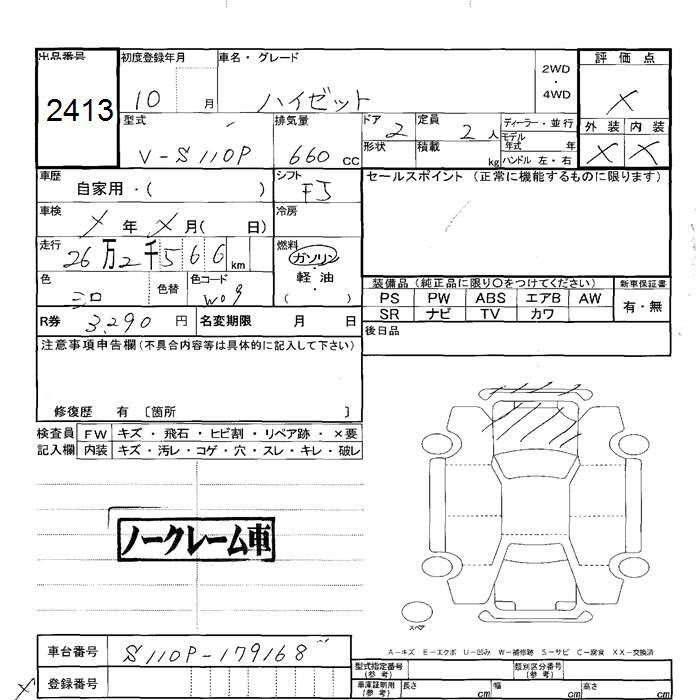 出品番号 初度登録年月 車名・グレード 評価点
2413 10 月 ハイゼット 2WD・4WD ×
型式 排気量 ドア 2 定員 2 人 ディーラー・並行 外装 内装
V-S110P 660 cc 形状 積載 kg モデル年式 年 ハンドル 左・右 × ×
車歴 自家用・( ) シフト F5 セールスポイント (正常に機能するものに限ります)
車検 × 年 × 月( 日) 冷房
走行 26万2千566 km 燃料 ガソリン 軽油 ( )
色 シロ 色替 色コード W09 装備品(純正品に限り○をつけてください) 新車保証書
PS PW ABS エアB AW 有・無
R券 3,290 円 名変期限 月 日 SR ナビ TV カワ
後日品
注意事項申告欄(不具合内容等は具体的に記入して下さい)
修復歴 有 〔箇所 〕
検査員 FW キズ・飛石・ヒビ割・リペア跡・×要
記入欄 内装 キズ・汚レ・コゲ・穴・スレ・キレ・破レ
ノークレーム車
スペア
車台番号 S110P-179168 A−キズ E−エクボ U−凹み W−補修跡 S−サビ C−腐食 XX−交換済
登録番号 型式指定番号(参考) 類別区分番号(参考)
× 車庫証明用(参考) 長さ cm 幅 cm 高さ cm